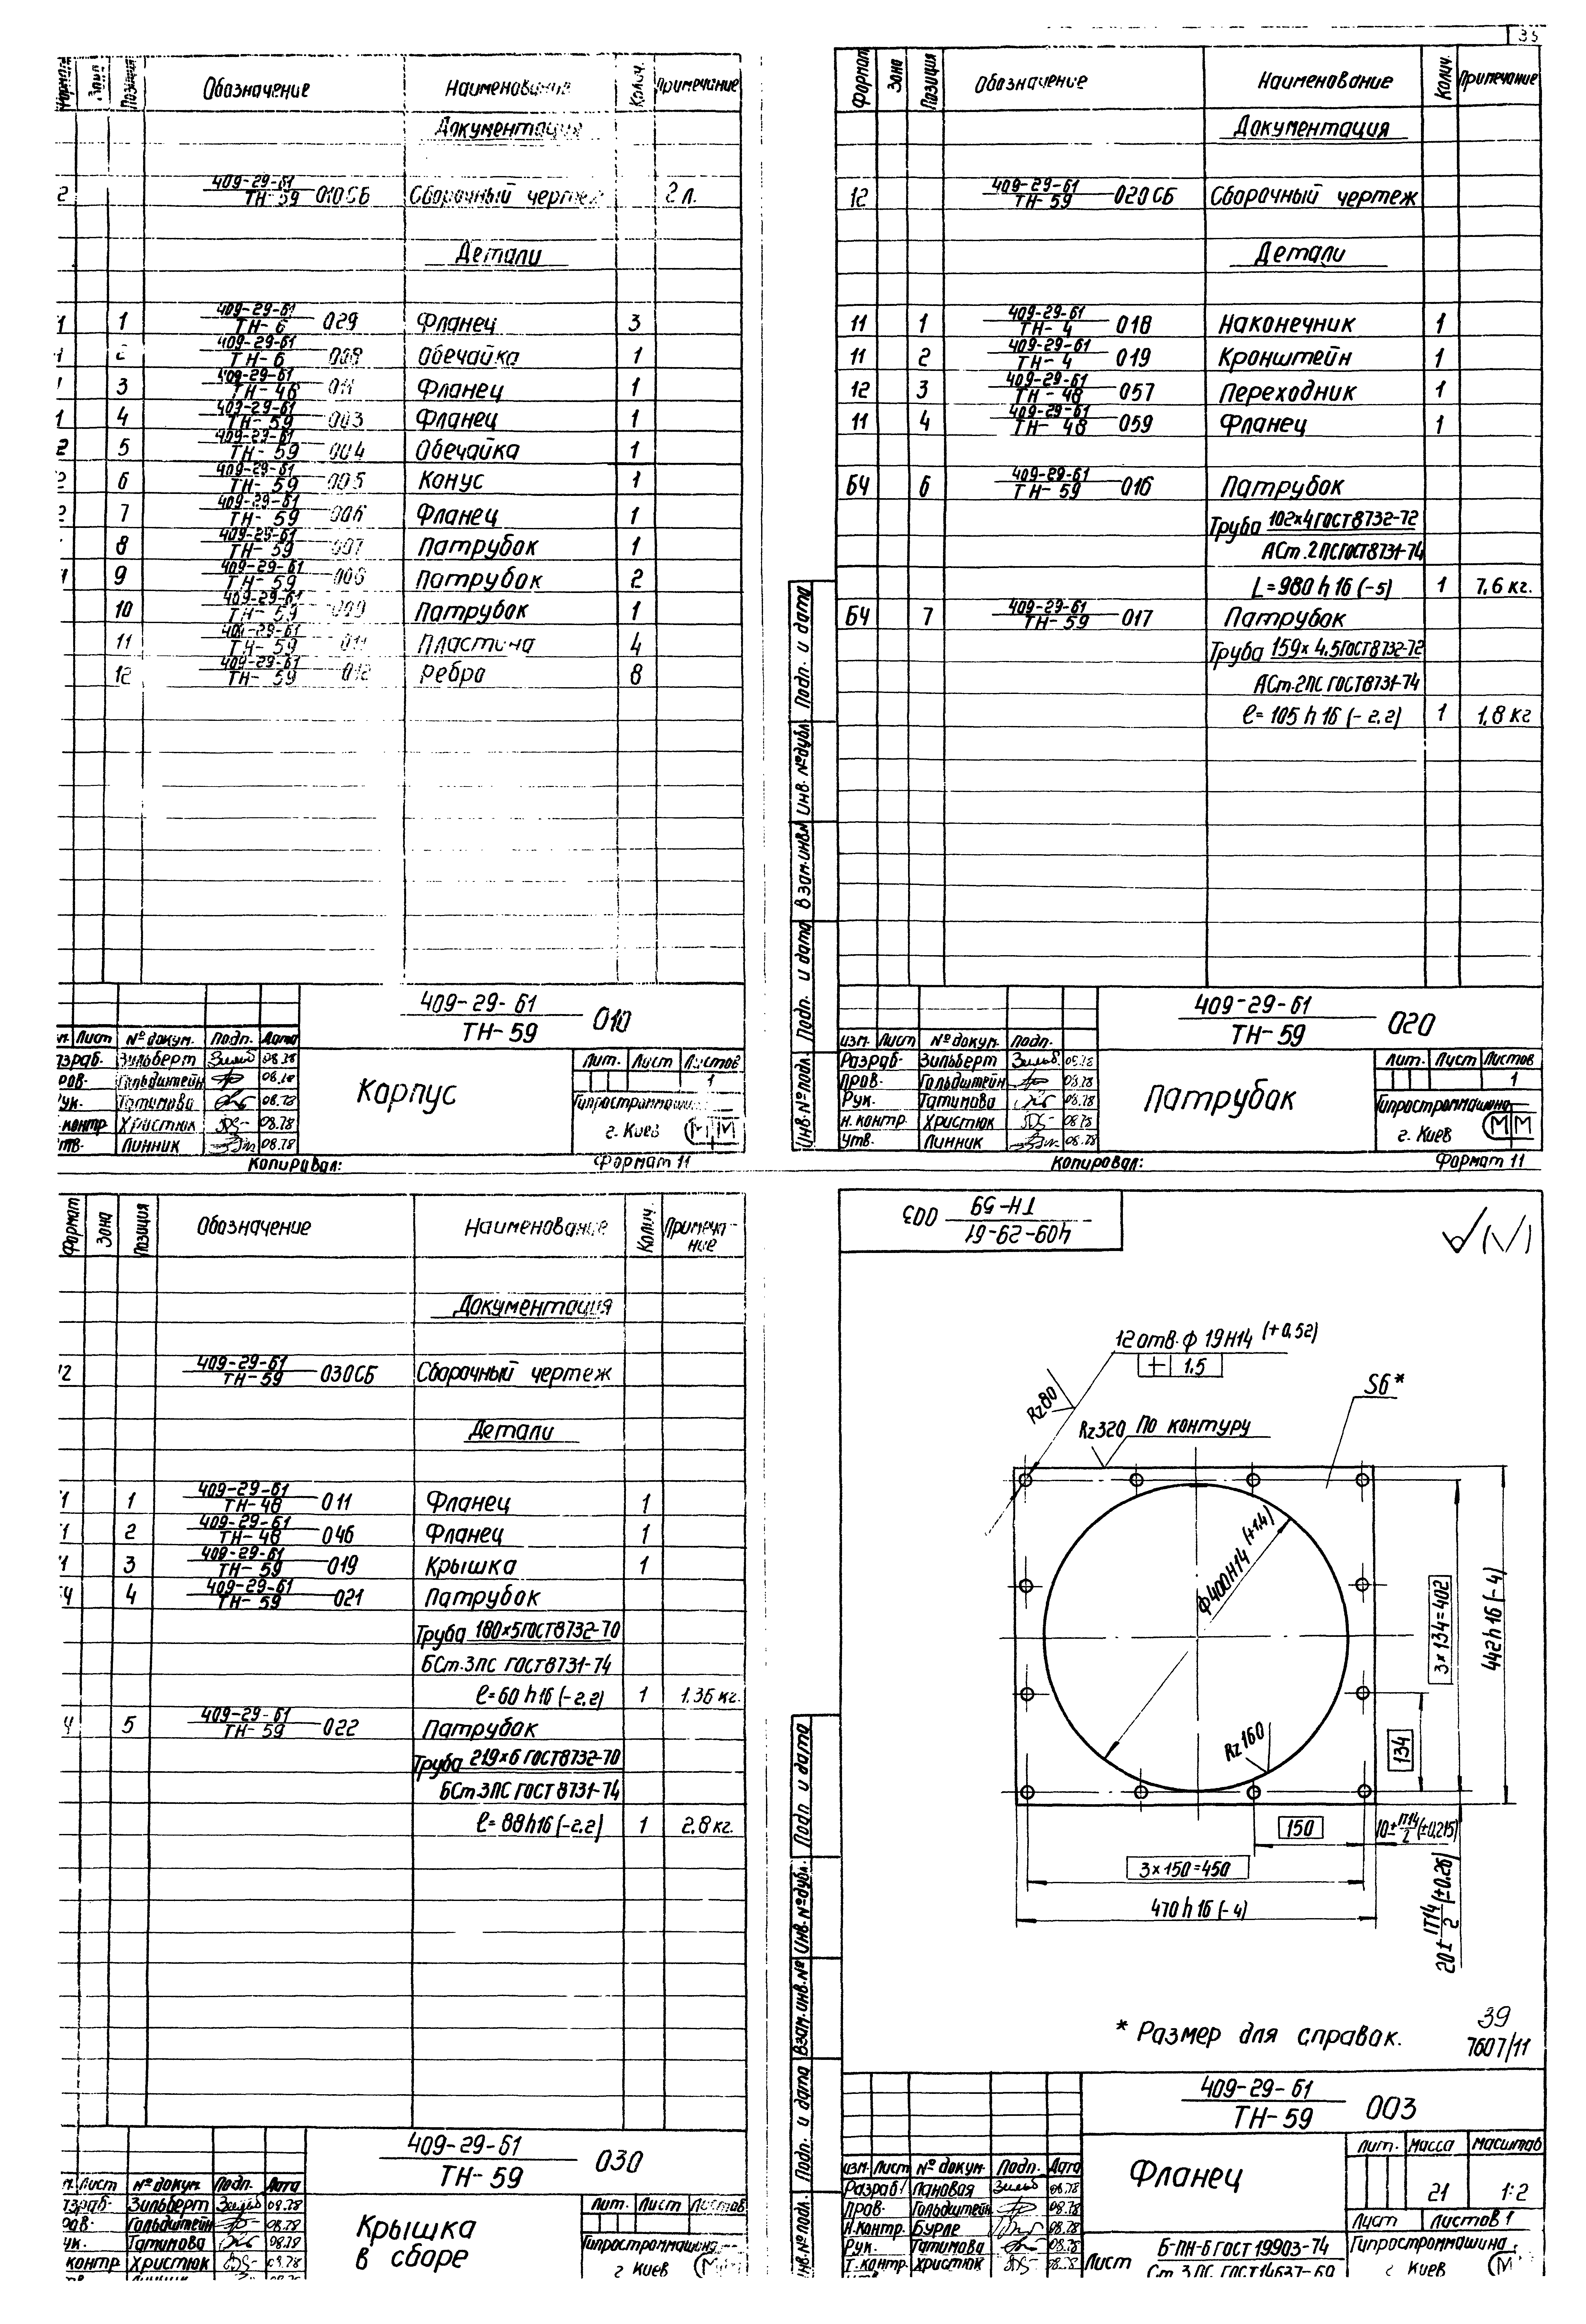 35
Формат Зона Позиция Обозначение Наименование Колич. Примечание
Документация
2 409-29-61/ТН-59 010СБ Сборочный чертеж 2 л.
Детали
1 1 409-29-61/ТН-6 029 Фланец 3
409-29-61/ТН-6 008 Обечайка 1
3 409-29-61/ТН-48 Фланец 1
1 4 409-29-61/ТН-59 003 Фланец 1
2 5 409-29-61/ТН-59 004 Обечайка 1
2 6 409-29-61/ТН-59 005 Конус 1
2 7 409-29-61/ТН-59 006 Фланец 1
8 409-29-61/ТН-59 007 Патрубок 1
1 9 409-29-61/ТН-59 Патрубок 2
10 409-29-61/ТН-59 009 Патрубок 1
11 409-29-61/ТН-59 011 Пластина 4
12 409-29-61/ТН-59 012 Ребро 8
409-29-61/ТН-59 010
Лист № докум. Подп. Дата
Разраб. Зильберт 08.78
Пров. Гольдштейн 08.78
Рук. Татинова 08.78
Н. контр. Христюк 08.78
Утв. Линник 08.78
Корпус
Лит. Лист Листов
1
Гипростроммашина
г. Киев
Копировал: Формат 11
Формат Зона Позиция Обозначение Наименование Колич. Примечание
Документация
12 409-29-61/ТН-59 020СБ Сборочный чертеж
Детали
11 1 409-29-61/ТН-4 018 Наконечник 1
11 2 409-29-61/ТН-4 019 Кронштейн 1
12 3 409-29-61/ТН-48 057 Переходник 1
11 4 409-29-61/ТН-48 059 Фланец 1
БЧ 6 409-29-61/ТН-59 016 Патрубок
Труба 102×4 ГОСТ 8732-72
АСт.2ПС ГОСТ 8731-74
L=980 h16 (-5) 1 7,6 кг.
БЧ 7 409-29-61/ТН-59 017 Патрубок
Труба 159×4.5 ГОСТ 8732-72
АСт.2ПС ГОСТ 8731-74
ℓ=105 h16 (-2.2) 1 1,8 кг
Инв. № подл. Подп. и дата Взам. инв. № Инв. № дубл. Подп. и дата
409-29-61/ТН-59 020
Изм. Лист № докум. Подп.
Разраб. Зильберт 08.78
Пров. Гольдштейн 08.78
Рук. Татинова 08.78
Н. контр. Христюк 08.78
Утв. Линник 08.78
Патрубок
Лит. Лист Листов
1
Гипростроммашина
г. Киев
Копировал: Формат 11
Формат Зона Позиция Обозначение Наименование Колич. Примечание
Документация
12 409-29-61/ТН-59 030СБ Сборочный чертеж
Детали
1 1 409-29-61/ТН-48 011 Фланец 1
1 2 409-29-61/ТН-48 046 Фланец 1
1 3 409-29-61/ТН-59 019 Крышка 1
Ч 4 409-29-61/ТН-59 021 Патрубок
Труба 180×5 ГОСТ 8732-70
БСт.3ПС ГОСТ 8731-74
ℓ=60 h16 (-2.2) 1 1.36 кг.
Ч 5 409-29-61/ТН-59 022 Патрубок
Труба 219×6 ГОСТ 8732-70
БСт3ПС ГОСТ 8731-74
ℓ=88h16 (-2.2) 1 2.8 кг.
409-29-61/ТН-59 030
Лист № докум. Подп. Дата
Разраб. Зильберт 08.78
Пров. Гольдштейн 08.78
Рук. Татинова 08.78
Н. контр. Христюк 08.78
Крышка
в сборе
Лит. Лист Листов
Гипростроммашина
г Киев
409-29-61/ТН-59 003
12 отв. ф 19Н14 (+0,52)
1.5
Rz80
Rz320 По контуру
S6*
ф400Н14 (+1.4)
Rz160
3×134=402
442h16 (-4)
134
150
10±IT14/2 (±0,215)
3×150=450
470 h16 (-4)
20±IT14/2 (±0.26)
* Размер для справок.
39
7607/11
Инв. № подл. Подп. и дата Взам. инв. № Инв. № дубл. Подп и дата
409-29-61/ТН-59 003
Изм. Лист № докум. Подп. Дата
Разраб. Пановая 08.78
Пров. Гольдштейн 08.78
Н.контр. Бурле 08.78
Рук. Татинова 08.78
Т. контр. Христюк 08.78
Фланец
Лит. Масса Масштаб
21 1:2
Лист Листов 1
Лист Б-ПН-6 ГОСТ 19903-74
Ст.3ПС ГОСТ 14637-69
Гипростроммашина
г Киев